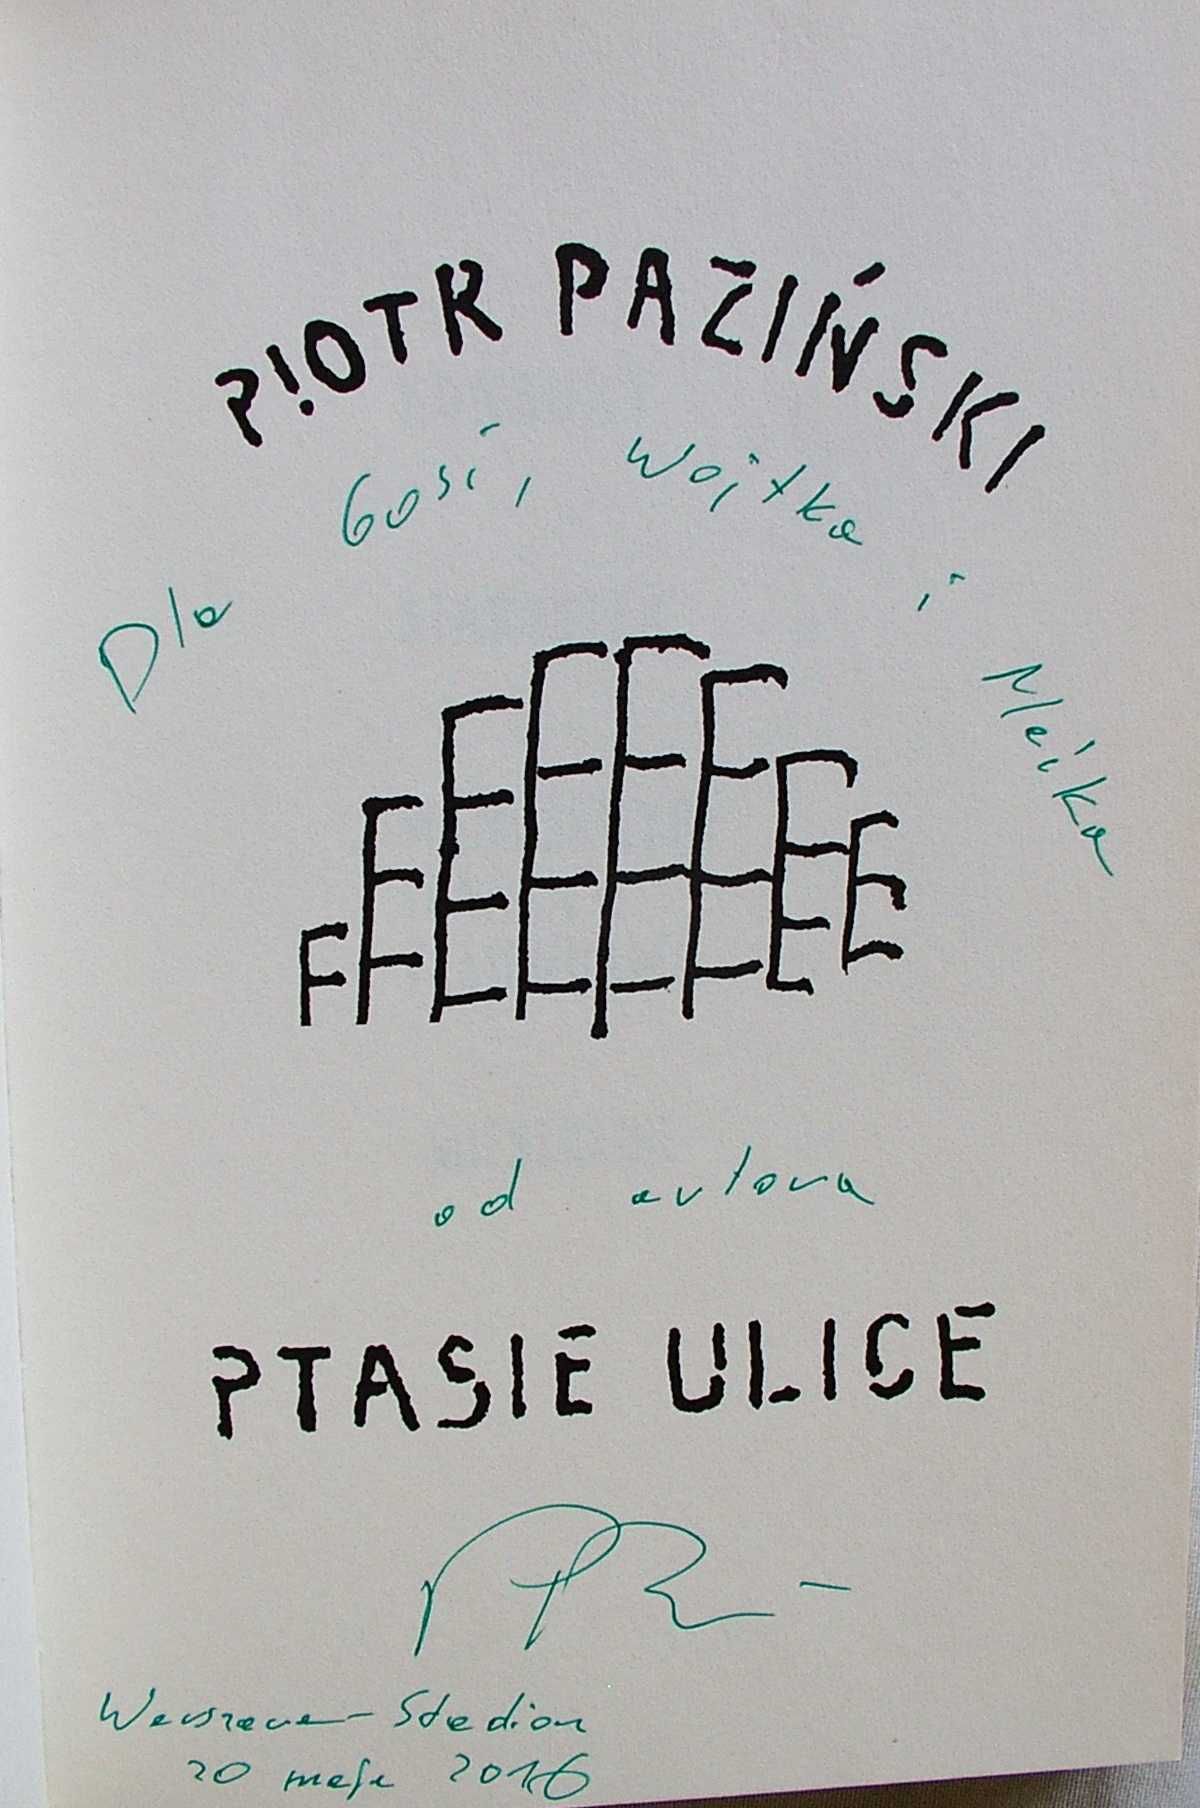 PIOTR PAZIŃSKI
Dla Gosi, Wojtka i Maćka
od autora
PTASIE ULICE
Warszawa - Stadion
20 maja 2016